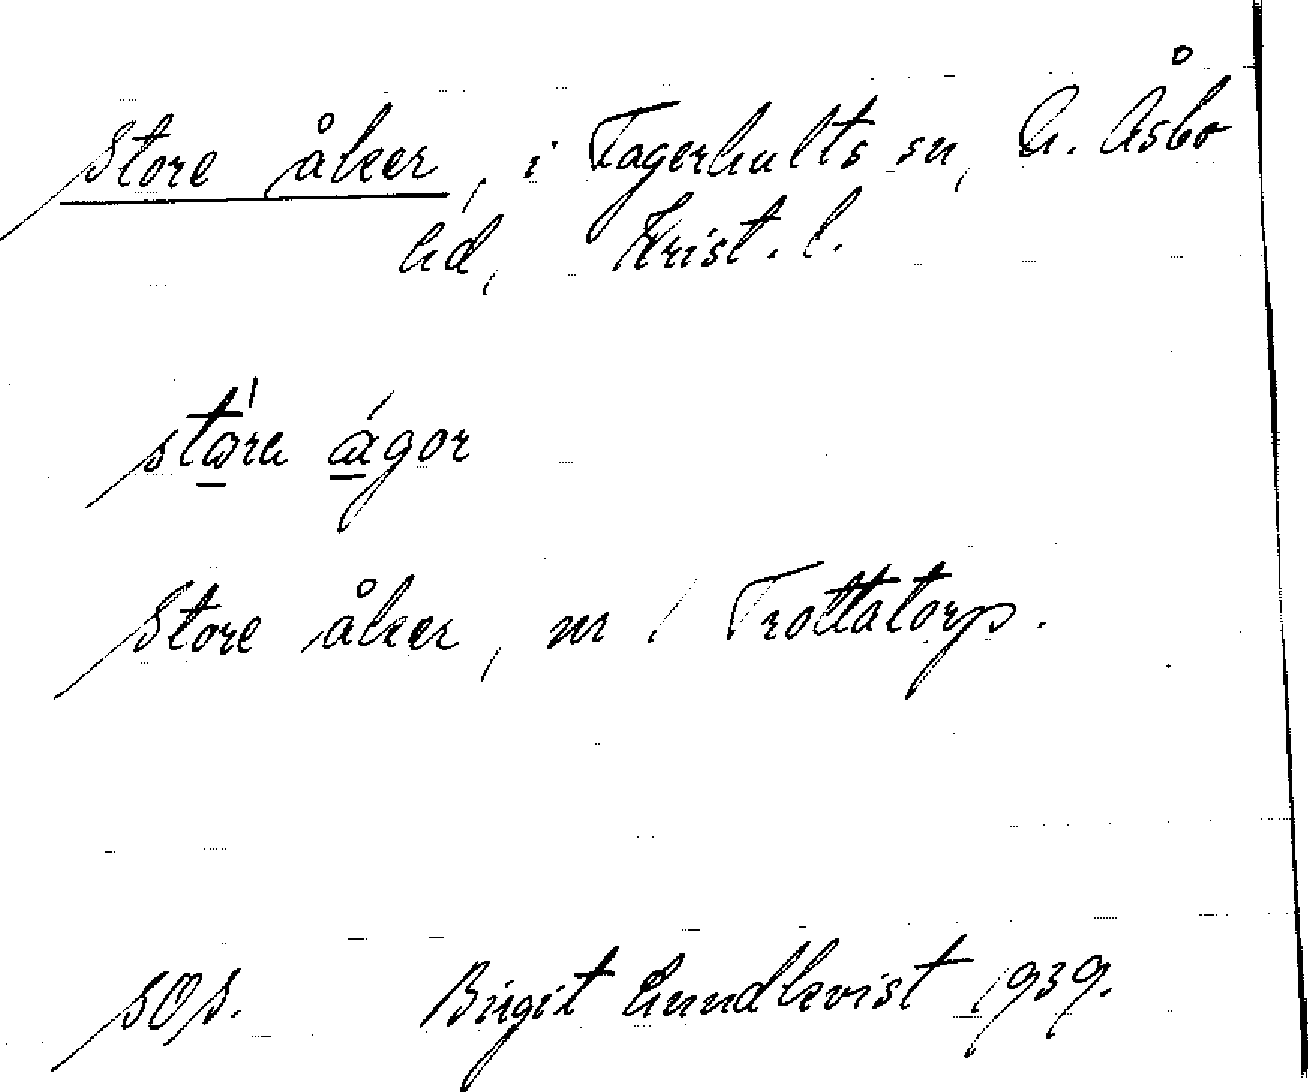 Store åker, i Fagerhults sn, N. Åsbo
hd, Krist. l.
store ágor
Store åker, m i Trottatorp.
SOS. Birgit Lundkvist 1939.